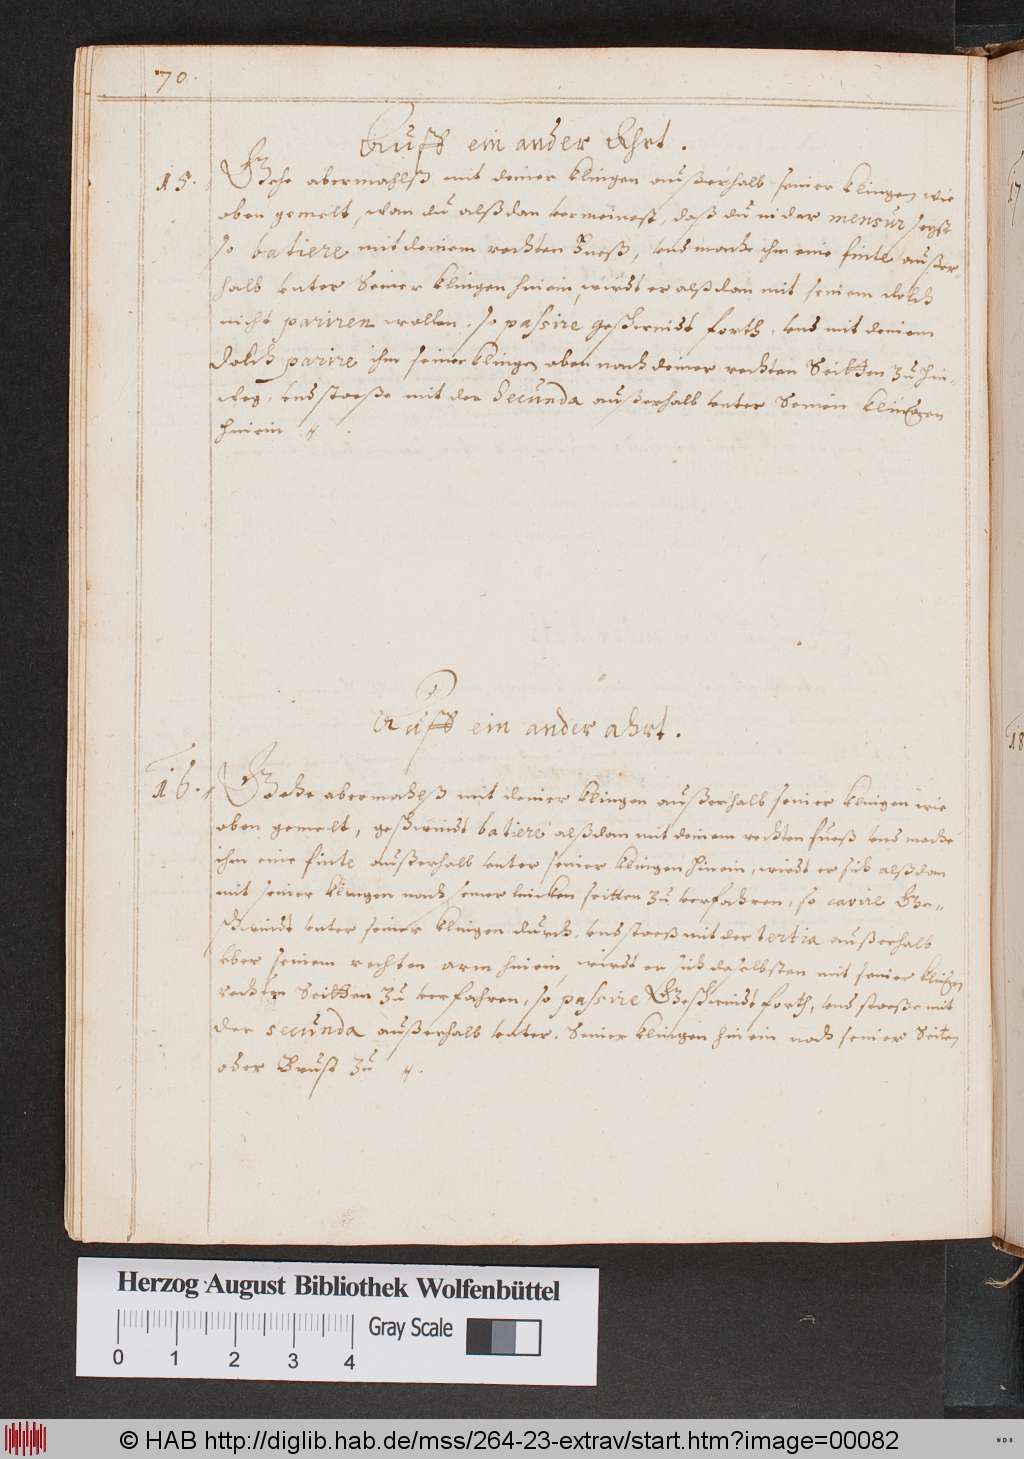 70.
Auff ein ander Ahrt.
15. Gehe abermahlß mit deiner klingen außerhalb seiner klingen wie
oben gemelt, wan du alßdan vermeinest, daß du in der mensur seyst
so batiere mit deinem rechten Fueß, vnd mache ihm eine finte außer
halb vnter Seiner klingen hinein, wirdt er alßdan mit seinem dolch
nicht pariren wollen, so passire geschwindt forth, vnd mit deinem
dolch parire ihm seine klingen oben nach deiner rechten Seitten zu hin-
weg, vnd stoeße mit der Secunda außerhalb vnter Seinen klingen
hinein
Auff ein ander ahrt.
16. Gehe abermahlß mit deiner klingen außerhalb seiner klingen wie
oben gemelt, geschwindt batiere alßdan mit deinem rechten fueß vnd mache
ihm eine finte außerhalb vnter seiner klingen hinein, wirdt er sich alßdan
mit seiner klingen nach seiner lincken seitten zu verfahren, so cavire Ge-
schwindt vnter seiner klingen durch, vnd stoeß mit der tertia außerhalb
vber seinem rechten arm hinein, wirdt er sich daselbsten mit seiner klingen
rechten Seitten zu verfahren, so passire Geschwindt forth, vnd stoeße mit
der secunda außerhalb vnter Seiner klingen hinein nach seiner Seiten
oder Brust zu
Herzog August Bibliothek Wolfenbüttel
0 1 2 3 4 Gray Scale
© HAB http://diglib.hab.de/mss/264-23-extrav/start.htm?image=00082